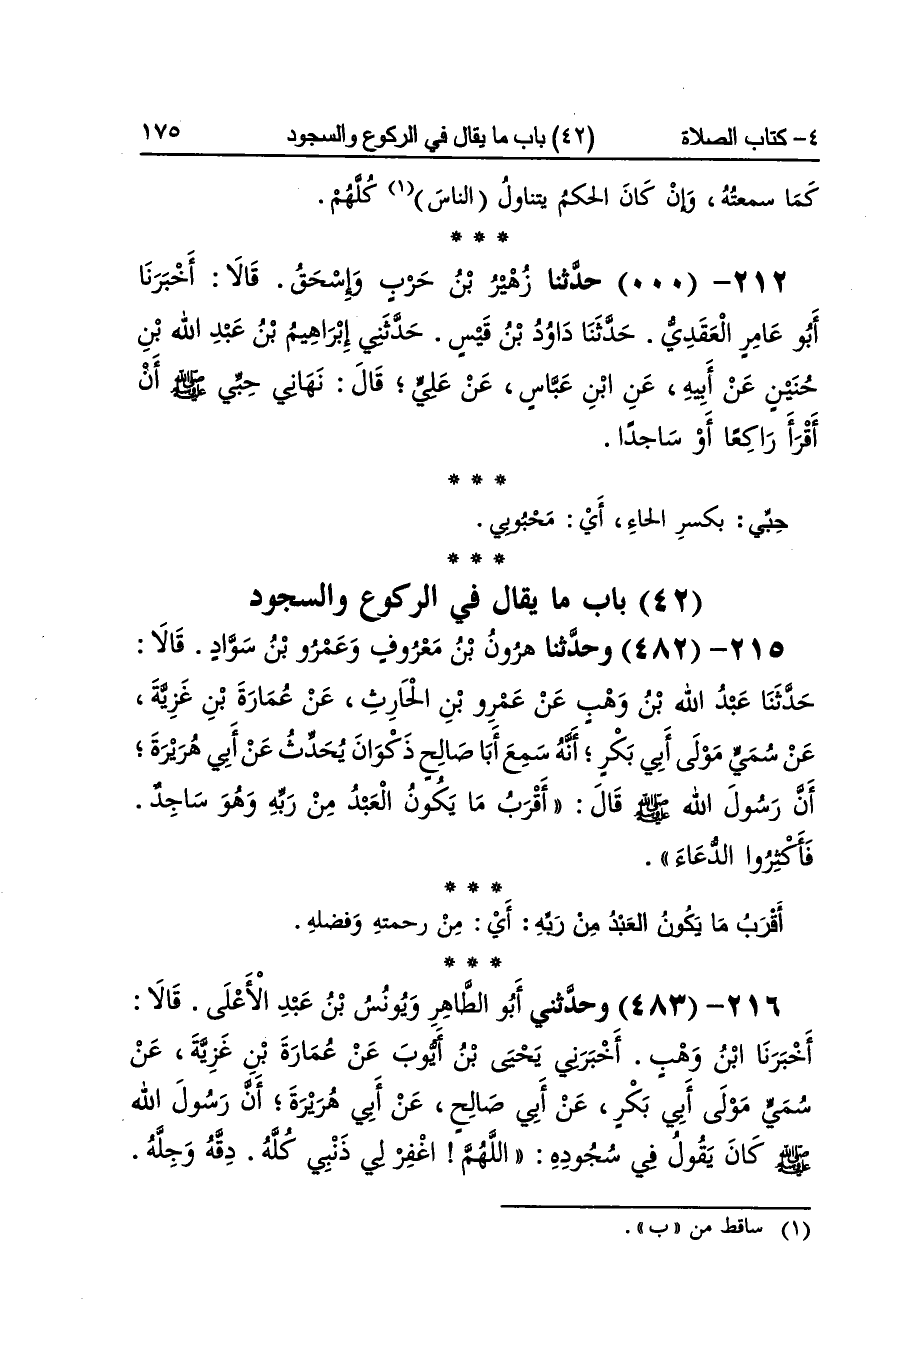 ٤- كتاب الصلاة (٤٢) باب ما يقال في الركوع والسجود ١٧٥
كَمَا سمعتُهُ ، وَإِنْ كَانَ الحكمُ يتناولُ (الناسَ)(١) كُلَّهُمْ .
* * *
٢١٢- (٠٠٠) حدَّثنا زُهَيْرُ بْنُ حَرْبٍ وَإِسْحَقُ . قَالَا : أَخْبَرَنَا
أَبُو عَامِرٍ الْعَقَدِيُّ . حَدَّثَنَا دَاوُدُ بْنُ قَيْسٍ . حَدَّثَنِي إِبْرَاهِيمُ بْنُ عَبْدِ الله بْنِ
حُنَيْنٍ عَنْ أَبِيهِ ، عَنِ ابْنِ عَبَّاسٍ ، عَنْ عَلِيٍّ ؛ قَالَ : نَهَانِي حِبِّي ﷺ أَنْ
أَقْرَأَ رَاكِعًا أَوْ سَاجِدًا .
* * *
حِبِّي : بكسرِ الحاءِ ، أَيْ : مَحْبُوبِي .
* * *
(٤٢) باب ما يقال في الركوع والسجود
٢١٥- (٤٨٢) وحدَّثنا هرُونُ بْنُ مَعْرُوفٍ وَعَمْرُو بْنُ سَوَّادٍ . قَالَا :
حَدَّثَنَا عَبْدُ الله بْنُ وَهْبٍ عَنْ عَمْرِو بْنِ الْحَارِثِ ، عَنْ عُمَارَةَ بْنِ غَزِيَّةَ ،
عَنْ سُمَيٍّ مَوْلَى أَبِي بَكْرٍ ؛ أَنَّهُ سَمِعَ أَبَا صَالِحٍ ذَكْوَانَ يُحَدِّثُ عَنْ أَبِي هُرَيْرَةَ ؛
أَنَّ رَسُولَ الله ﷺ قَالَ : « أَقْرَبُ مَا يَكُونُ الْعَبْدُ مِنْ رَبِّهِ وَهُوَ سَاجِدٌ .
فَأَكْثِرُوا الدُّعَاءَ » .
* * *
أَقْرَبُ مَا يَكُونُ العَبْدُ مِنْ رَبِّهِ : أَيْ : مِنْ رحمتهِ وَفضلهِ .
* * *
٢١٦- (٤٨٣) وحدَّثني أَبُو الطَّاهِرِ وَيُونُسُ بْنُ عَبْدِ الْأَعْلَى . قَالَا :
أَخْبَرَنَا ابْنُ وَهْبٍ . أَخْبَرَنِي يَحْيَى بْنُ أَيُّوبَ عَنْ عُمَارَةَ بْنِ غَزِيَّةَ ، عَنْ
سُمَيٍّ مَوْلَى أَبِي بَكْرٍ ، عَنْ أَبِي صَالِحٍ ، عَنْ أَبِي هُرَيْرَةَ ؛ أَنَّ رَسُولَ الله
ﷺ كَانَ يَقُولُ فِي سُجُودِهِ : « اللَّهُمَّ ! اغْفِرْ لِي ذَنْبِي كُلَّهُ . دِقَّهُ وَجِلَّهُ .
(١) ساقط من « ب » .